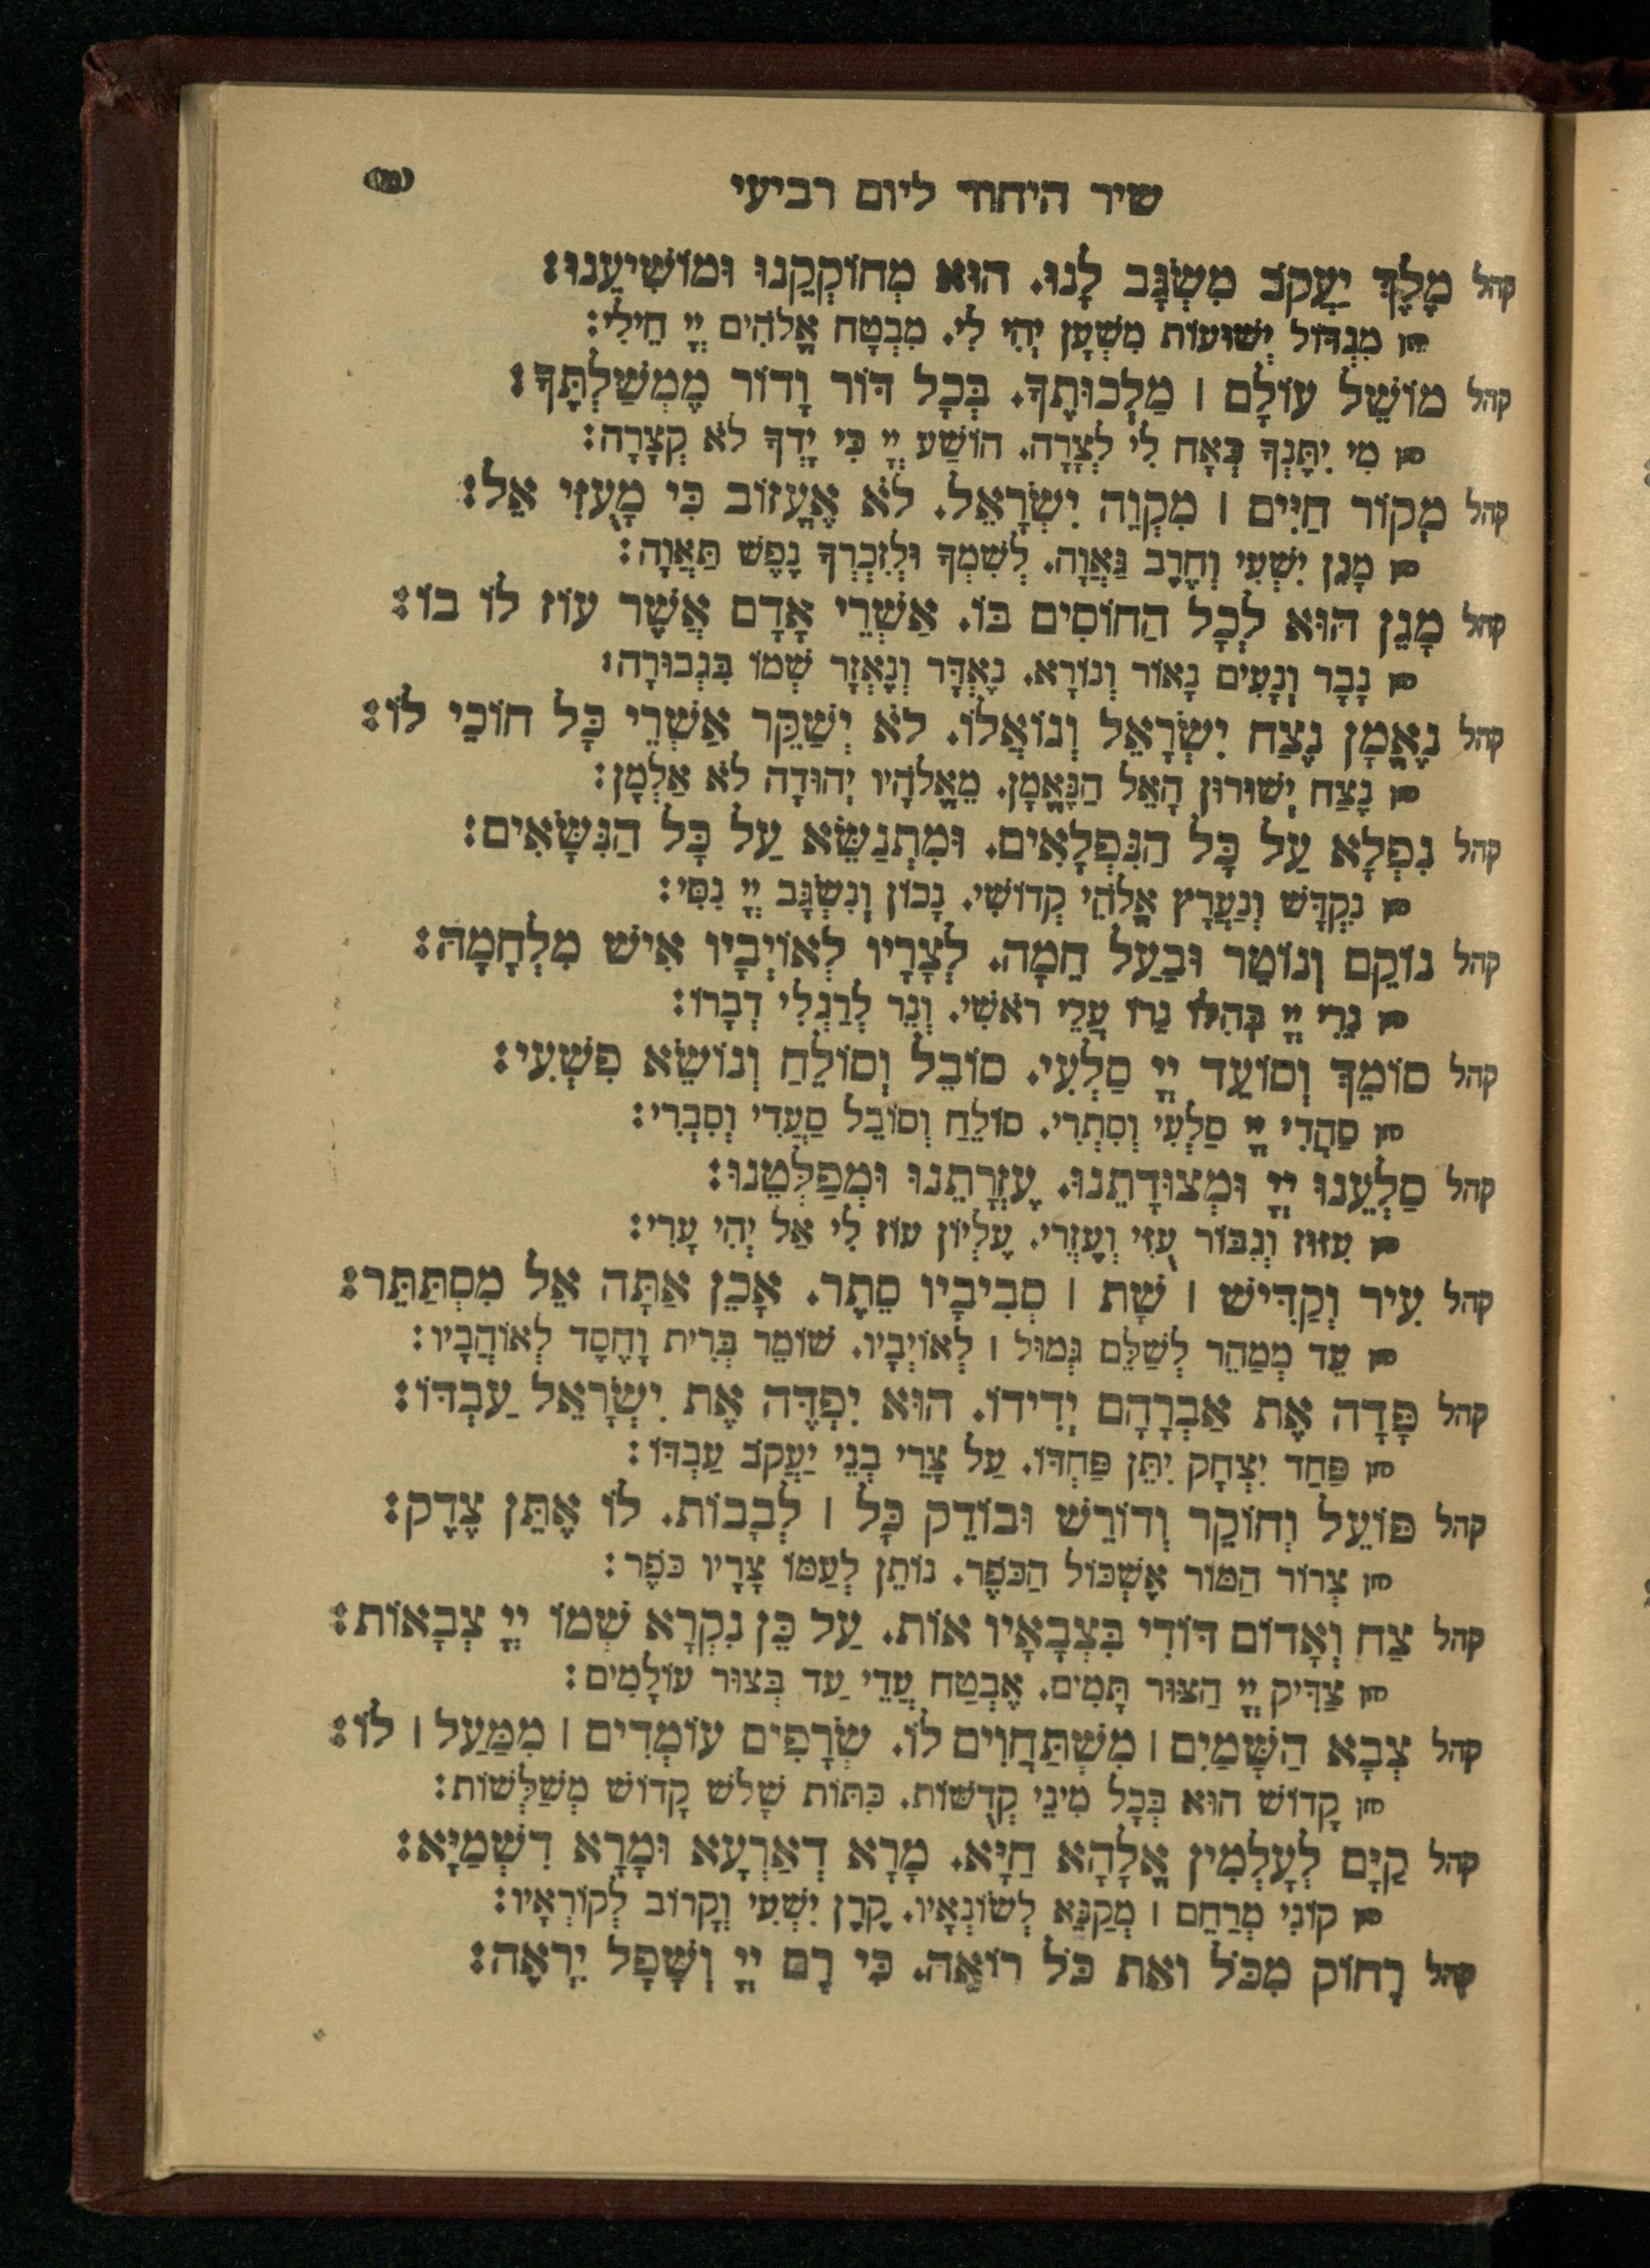 שיר היחוד ליום רביעי
קהל מֶלֶךְ יַעֲקֹב מִשְׂגָּב לָנוּ. הוּא מְחוֹקְקֵנוּ וּמוֹשִׁיעֵנוּ:
חזן מִגְדּוֹל יְשׁוּעוֹת מִשְׁעָן יְהִי לִי. מִבְטָח אֱלֹהִים יְיָ חֵילִי:
קהל מוֹשֵׁל עוֹלָם | מַלְכוּתֶךָ. בְּכָל דּוֹר וָדוֹר מֶמְשַׁלְתֶּךָ:
חזן מִי יִתֶּנְךָ כְּאָח לִי לְצָרָה. הוֹשַׁע יְיָ כִּי יָדְךָ לֹא קְצָרָה:
קהל מְקוֹר חַיִּים | מִקְוֵה יִשְׂרָאֵל. לֹא אֶעֱזוֹב כִּי מָעֻזִּי אֵל:
חזן מָגֵן יִשְׁעִי וְחֶרֶב גַּאֲוָה. לְשִׁמְךָ וּלְזִכְרְךָ נָפֶשׁ תַּאֲוָה:
קהל מָגֵן הוּא לְכָל הַחוֹסִים בּוֹ. אַשְׁרֵי אָדָם אֲשֶׁר עוֹז לוֹ בוֹ:
חזן נָבָר וְנָעִים נָאוֹר וְנוֹרָא. נֶאְדָּר וְנֶאְזָר שְׁמוֹ בִּגְבוּרָה:
קהל נֶאֱמָן נֶצַח יִשְׂרָאֵל וְגוֹאֲלוֹ. לֹא יְשַׁקֵּר אַשְׁרֵי כָּל חוֹכֵי לוֹ:
חזן נֶצַח יְשׁוּרוּן הָאֵל הַנֶּאֱמָן. מֵאֱלֹהָיו יְהוּדָה לֹא אַלְמָן:
קהל נִפְלָא עַל כָּל הַנִּפְלָאִים. וּמִתְנַשֵּׂא עַל כָּל הַנִּשָּׂאִים:
חזן נִקְדָּשׁ וְנַעֲרָץ אֱלֹהֵי קְדוֹשִׁי. נָכוֹן וְנִשְׂגָּב יְיָ נִסִּי:
קהל נוֹקֵם וְנוֹטֵר וּבַעַל חֵמָה. לְצָרָיו לְאוֹיְבָיו אִישׁ מִלְחָמָה:
חזן נֵרִי יְיָ בְּהִלּוֹ נֵרוֹ עֲלֵי רֹאשִׁי. וְנֵר לְרַגְלִי דְבָרוֹ:
קהל סוֹמֵךְ וְסוֹעֵד יְיָ סַלְעִי. סוֹבֵל וְסוֹלֵחַ וְנוֹשֵׂא פִשְׁעִי:
חזן סַהֲדִי יְיָ סַלְעִי וְסִתְרִי. סוֹלֵחַ וְסוֹבֵל סַעֲדִי וְסִבְרִי:
קהל סַלְעֵנוּ יְיָ וּמְצוּדָתֵנוּ. עֶזְרָתֵנוּ וּמְפַלְּטֵנוּ:
חזן עִזּוּז וְגִבּוֹר עֻזִּי וְעֶזְרִי. עֶלְיוֹן עוֹז לִי אַל יְהִי עָרִי:
קהל עִיר וְקַדִּישׁ | שָׁת | סְבִיבָיו סֵתֶר. אָכֵן אַתָּה אֵל מִסְתַּתֵּר:
חזן עֵד מְמַהֵר לְשַׁלֵּם גְּמוּל | לְאוֹיְבָיו. שׁוֹמֵר בְּרִית וָחֶסֶד לְאוֹהֲבָיו:
קהל פָּדָה אֶת אַבְרָהָם יְדִידוֹ. הוּא יִפְדֶּה אֶת יִשְׂרָאֵל עַבְדּוֹ:
חזן פַּחַד יִצְחָק יִתֵּן פַּחְדּוֹ. עַל צָרֵי בְנֵי יַעֲקֹב עַבְדּוֹ:
קהל פּוֹעֵל וְחוֹקֵר וְדוֹרֵשׁ וּבוֹדֵק כָּל | לְבָבוֹת. לוֹ אֶתֵּן צֶדֶק:
חזן צְרוֹר הַמּוֹר אֶשְׁכּוֹל הַכֹּפֶר. נוֹתֵן לְעַמּוֹ צָרָיו כֹּפֶר:
קהל צַח וְאָדוֹם דּוֹדִי בִּצְבָאָיו אוֹת. עַל כֵּן נִקְרָא שְׁמוֹ יְיָ צְבָאוֹת:
חזן צַדִּיק יְיָ הַצּוּר תָּמִים. אֶבְטַח עֲדֵי עַד בְּצוּר עוֹלָמִים:
קהל צְבָא הַשָּׁמַיִם | מִשְׁתַּחֲוִים לוֹ. שְׂרָפִים עוֹמְדִים | מִמַּעַל | לוֹ:
חזן קָדוֹשׁ הוּא בְּכָל מִינֵי קְדֻשּׁוֹת. כִּתּוֹת שָׁלֹשׁ קָדוֹשׁ מְשַׁלְּשׁוֹת:
קהל קַיָּם לְעָלְמִין אֱלָהָא חַיָּא. מָרָא דְאַרְעָא וּמָרָא דִשְׁמַיָּא:
חזן קוֹנִי מְרַחֵם | מְקַנֵּא לְשׂוֹנְאָיו. קֶרֶן יִשְׁעִי וְקָרוֹב לְקוֹרְאָיו:
קהל רָחוֹק מִכֹּל וְאֶת כֹּל רוֹאֶה. כִּי רָם יְיָ וְשָׁפָל יִרְאֶה: